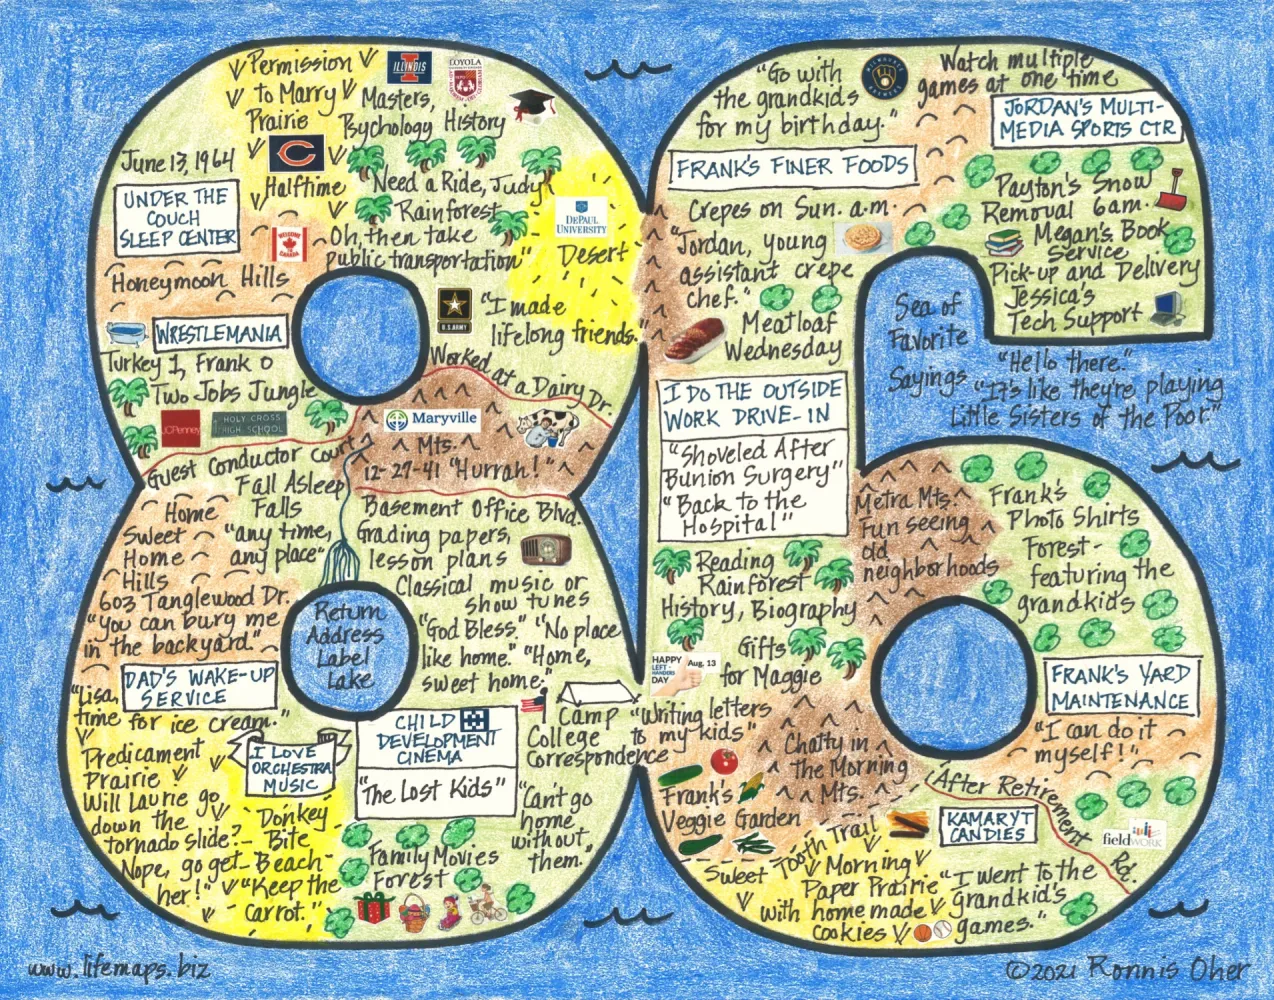 Permission
to Marry
Prairie
ILLINOIS
LOYOLA
Masters,
Psychology, History
June 13, 1964
UNDER THE
COUCH
SLEEP CENTER
Halftime
Need a Ride, Judy
Rainforest
Oh, then take
public transportation"
DEPAUL
UNIVERSITY
Desert
WELCOME TO
CANADA
Honeymoon Hills
WRESTLEMANIA
Turkey 1, Frank 0
Two Jobs Jungle
JCPenney
HOLY CROSS
HIGH SCHOOL
U.S. ARMY
"I made
lifelong friends."
Worked at a Dairy Dr.
Maryville
Mts.
12-27-41 "Hurrah!"
Guest Conductor Court
Fall Asleep
Falls
"any time,
any place"
Home
Sweet
Home
Hills
603 Tanglewood Dr.
"You can bury me
in the backyard."
Basement Office Blvd.
Grading papers,
lesson plans
Classical music or
show tunes
"God Bless." "No place
like home." "Home,
sweet home."
Return
Address
Label
Lake
DAD'S WAKE-UP
SERVICE
"Lisa,
time for ice cream."
Predicament
Prairie
Will Laurie go
down the
tornado slide?
Nope, go get
her!"
I LOVE
ORCHESTRA
MUSIC
Donkey
Bite
Beach-
"Keep the
carrot."
CHILD
DEVELOPMENT
CINEMA
"The Lost Kids"
Family Movies
Forest
Camp
College
Correspondence
"Can't go
home
without
them."
"Go with
the grandkids
for my birthday."
MILWAUKEE
BREWERS
Watch multiple
games at one time
JORDAN'S MULTI-
MEDIA SPORTS CTR
FRANK'S FINER FOODS
Crepes on Sun. a.m.
"Jordan, young
assistant crepe
chef."
Meatloaf
Wednesday
Payton's Snow
Removal 6am.
Megan's Book
Service
Pick-up and Delivery
Jessica's
Tech Support
Sea of
Favorite
Sayings
"Hello there."
"It's like they're playing
Little Sisters of the Poor."
I DO THE OUTSIDE
WORK DRIVE-IN
"Shoveled After
Bunion Surgery"
"Back to the
Hospital"
Metra Mts.
Fun seeing
old
neighborhoods
Frank's
Photo Shirts
Forest-
featuring the
grandkids
Reading
Rainforest
History, Biography
Gifts
for Maggie
HAPPY
LEFT-
HANDERS
DAY
Aug. 13
"Writing letters
to my kids"
Chatty in
the Morning
Mts.
Frank's
Veggie Garden
FRANK'S YARD
MAINTENANCE
"I can do it
myself!"
After Retirement Rd.
KAMARYT
CANDIES
fieldwork
Sweet Tooth Trail
Morning
Paper Prairie
with homemade
cookies
"I went to the
grandkid's
games."
www.lifemaps.biz
©2021 Ronnis Oher